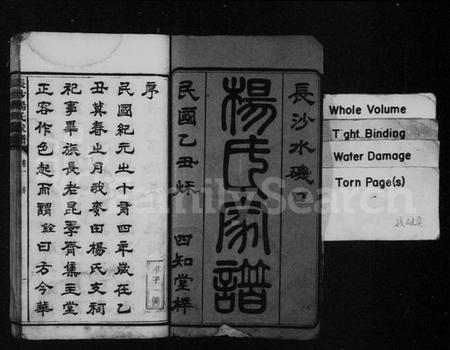 長沙水磯口
楊氏家譜
民國乙丑秌
四知堂梓
序
民國紀元之十有四年歲在乙
丑莫春之月我麥田楊氏支祠
祀事畢族長老昆季齊集在堂
正容作色起而謂銓曰方今華
Whole Volume
Tight Binding
Water Damage
Torn Page(s)
FamilySearch